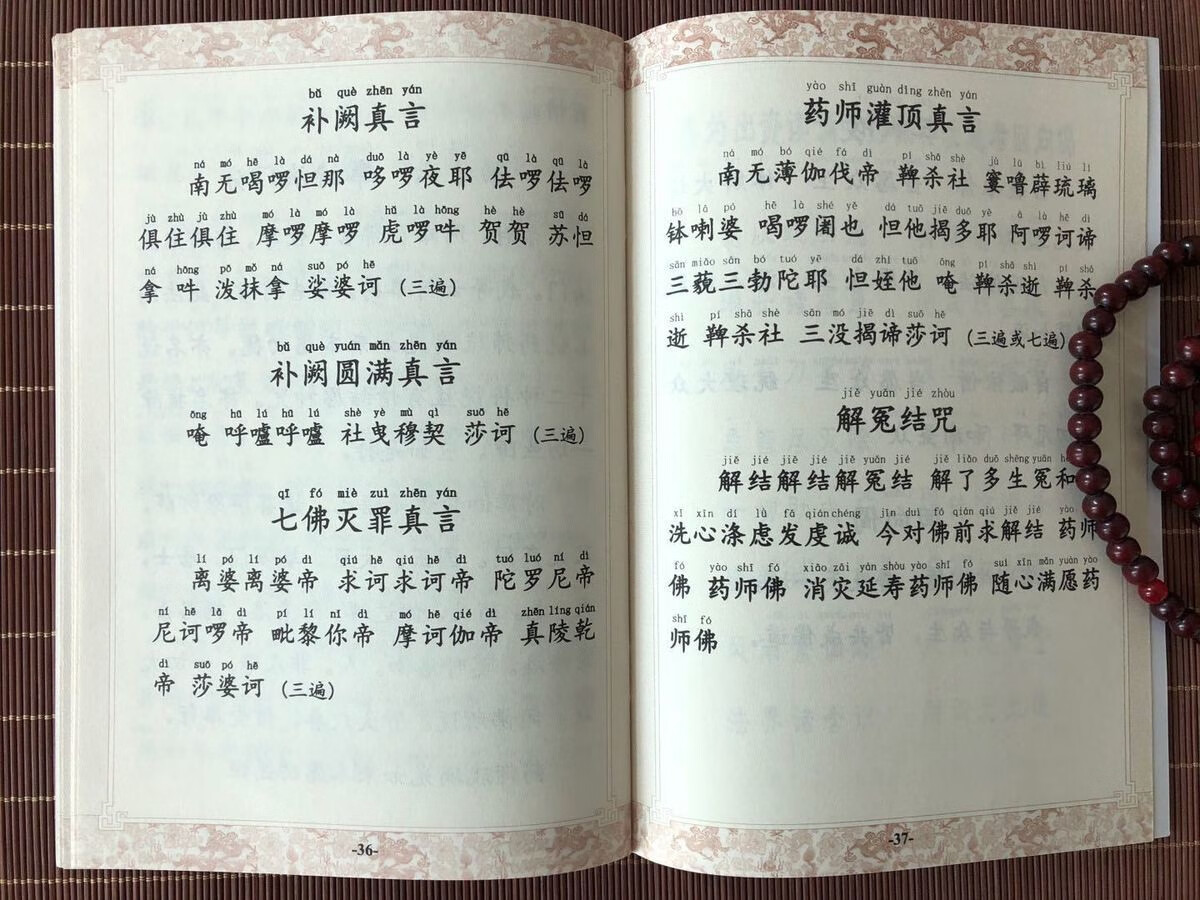 bǔ què zhēn yán
补阙真言
ná mó hē là dá nà duō là yè yē qū là qū là
南无喝啰怛那 哆啰夜耶 佉啰佉啰
jù zhù jù zhù mó là mó là hǔ là hōng hè hè sū dá
俱住俱住 摩啰摩啰 虎啰吽 贺贺 苏怛
ná hōng pō mǒ ná suō pó hē
拿 吽 泼抹拿 娑婆诃 (三遍)
bǔ què yuán mǎn zhēn yán
补阙圆满真言
ōng hū lú hū lú shè yè mù qì suō hē
唵 呼嚧呼嚧 社曳穆契 莎诃 (三遍)
qī fó miè zuì zhēn yán
七佛灭罪真言
lí pó lí pó dì qiú hē qiú hē dì tuó luó ní dì
离婆离婆帝 求诃求诃帝 陀罗尼帝
ní hē lā dì pí lí nǐ dì mó hē qié dì zhēn líng qián
尼诃啰帝 毗黎你帝 摩诃伽帝 真陵乾
dì suō pó hē
帝 莎婆诃 (三遍)
-36-
yào shī guàn dǐng zhēn yán
药师灌顶真言
ná mó bó qié fá dì pí shā shè jù lū bì liú lí
南无薄伽伐帝 鞞杀社 窭噜薜琉璃
bō lá pó hē là shé yē dá tuō jiē duō yē ā là hē dì
钵喇婆 喝啰阇也 怛他揭多耶 阿啰诃谛
sān miǎo sān bó tuó yē dá zhí tuō ōng pí shā shì pí shā
三藐三勃陀耶 怛姪他 唵 鞞杀逝 鞞杀
shì pí shā shè sān mó jiē dì suō hē
逝 鞞杀社 三没揭谛莎诃 (三遍或七遍)
jiě yuān jié zhòu
解冤结咒
jiě jié jiě jié jiě yuān jié jiě liǎo duō shēng yuān hé
解结解结解冤结 解了多生冤和
xǐ xīn dí lǜ fā qián chéng jīn duì fó qián qiú jiě jié yào shī
洗心涤虑发虔诚 今对佛前求解结 药师
fó yào shī fó xiāo zāi yán shòu yào shī fó suí xīn mǎn yuàn yào
佛 药师佛 消灾延寿药师佛 随心满愿药
shī fó
师佛
-37-